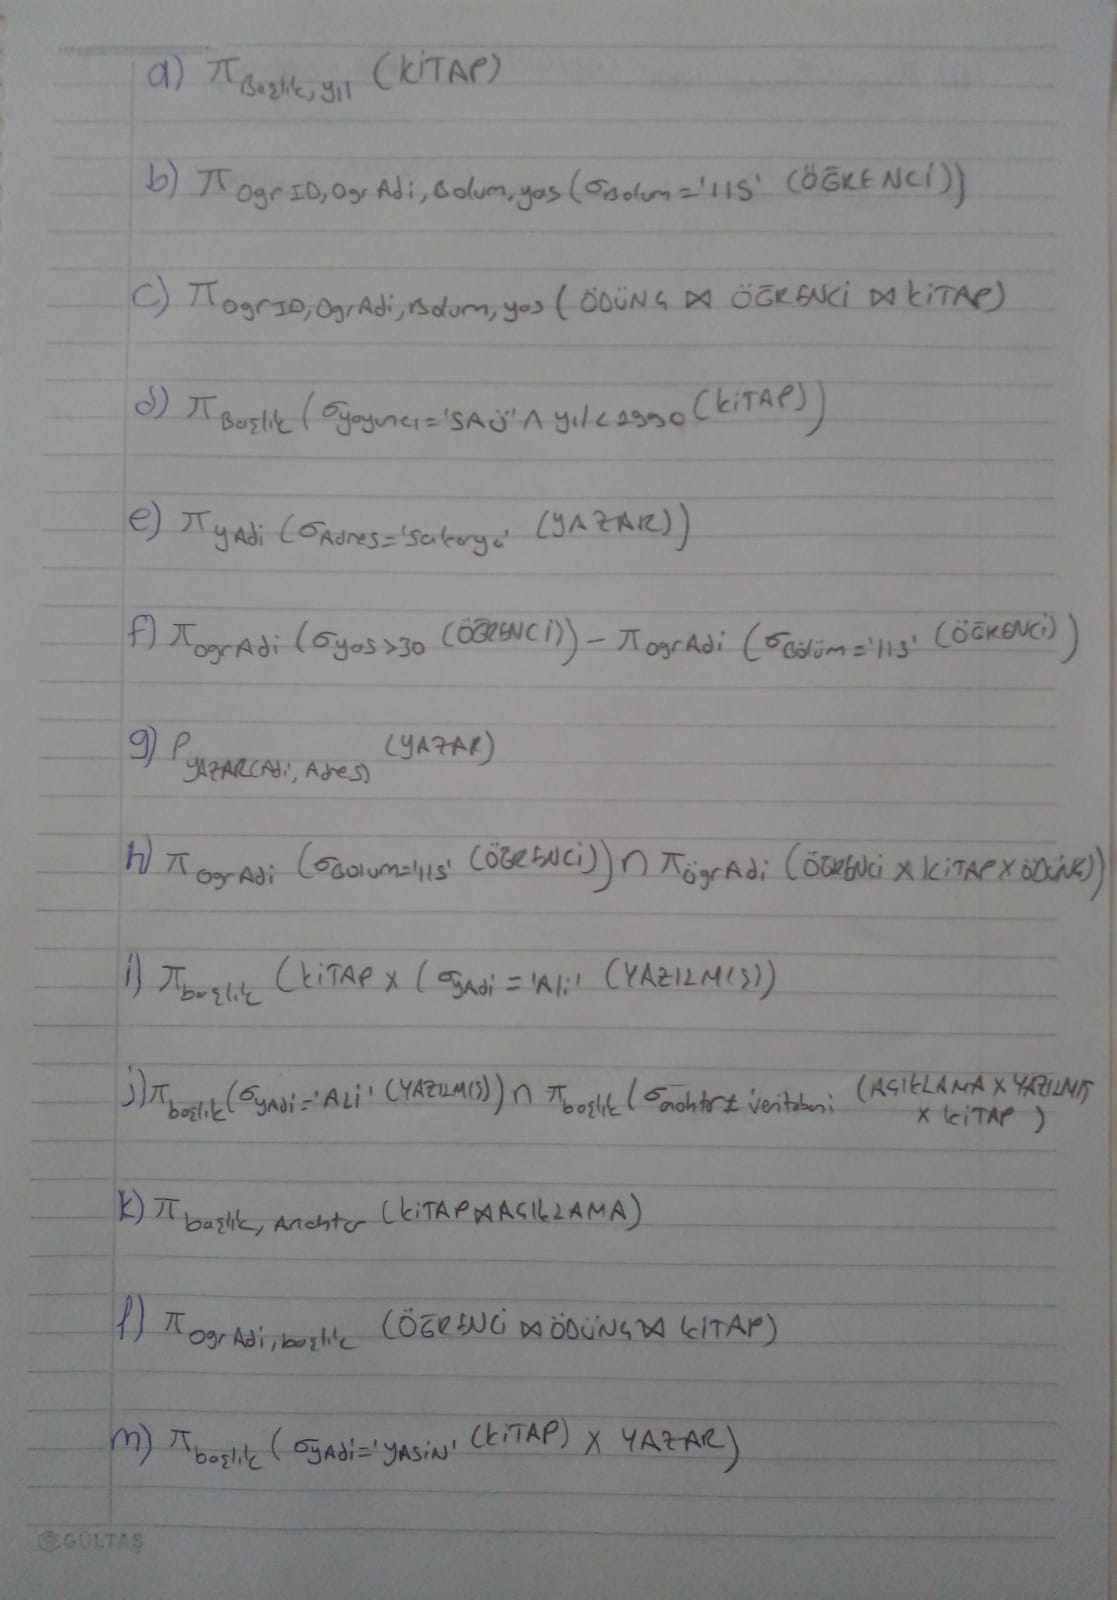 a) π Başlık, yıl (KİTAP)
b) π OgrID, Ogr Adi, Bolum, yas (σ Bolum = '115' (ÖĞRENCİ))
c) π OgrID, OgrAdi, Bolum, yas ( ÖDÜNÇ ⋈ ÖĞRENCİ ⋈ KİTAP)
d) π Başlık ( σ yayıncı = 'SAÜ' ∧ yıl < 1990 (KİTAP))
e) π yAdi (σ Adres = 'Sakarya' (YAZAR))
f) π ogrAdi (σ yas > 30 (ÖĞRENCİ)) – π ogrAdi (σ Bölüm = '115' (ÖĞRENCİ))
g) ρ YAZAR(Adi, Adres) (YAZAR)
h) π OgrAdi (σ Bolum = '115' (ÖĞRENCİ)) ∩ π ögrAdi (ÖĞRENCİ x KİTAP x ÖDÜNÇ))
i) π başlık (KİTAP x ( σ yAdi = 'Ali' (YAZILMIŞ))
j) π başlık (σ yAdi = 'ALi' (YAZILMIŞ)) ∩ π başlık ( σ veritabani (AÇIKLAMA x YAZILMIŞ
x KİTAP )
k) π başlık, Anahtar (KİTAP ⋈ AÇIKLAMA)
l) π OgrAdi, başlık (ÖĞRENCİ ⋈ ÖDÜNÇ ⋈ KİTAP)
m) π başlık ( σ yAdi = 'YASİN' (KİTAP) x YAZAR)
GÜLTAŞ